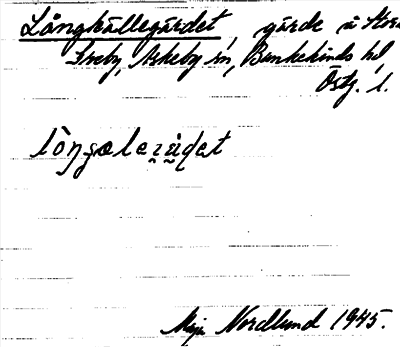 Långkällegärdet, gärde å Stora
Greby, Askeby sn, Bankekinds hd
Östg. l.
Maja Nordlund 1945.